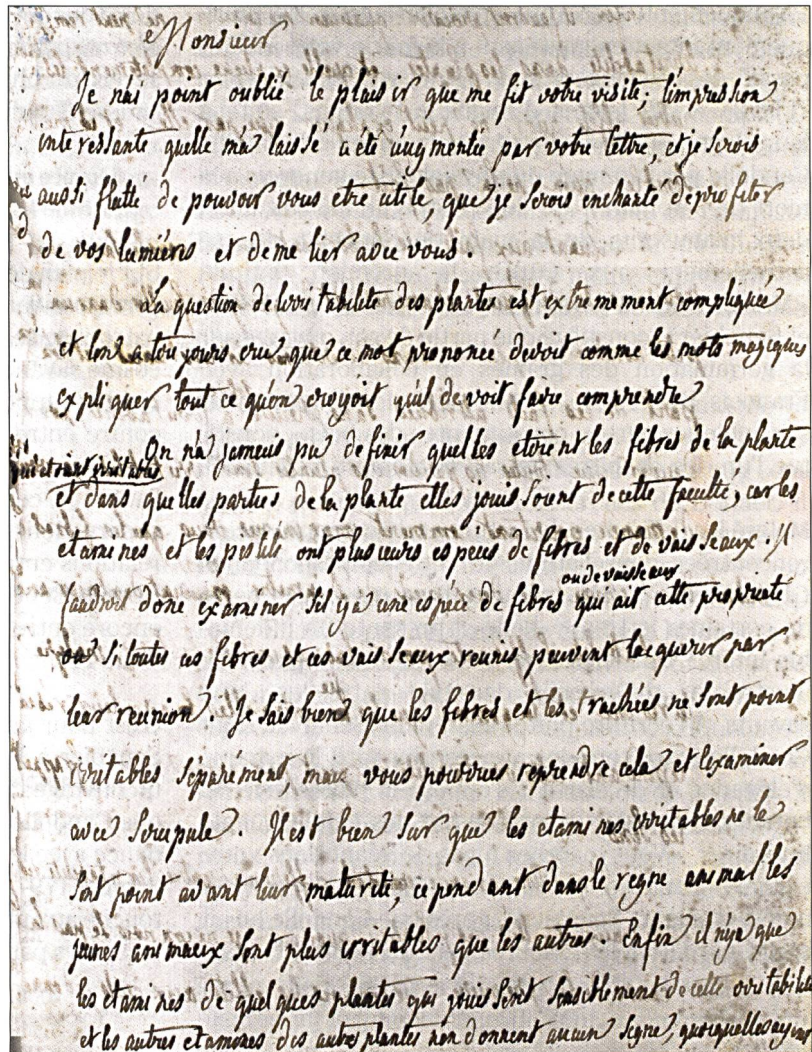 Monsieur
Je n'ai point oublié le plaisir que me fit votre visite; l'impression
interessante quelle m'a laissé a été augmentée par votre lettre, et je serois
aussi flatté de pouvoir vous etre utile, que je serois enchanté de profiter
de vos lumières et de me lier avec vous.
La question de l'irritabilité des plantes est extremement compliquée
et l'on a toujours cru que ce mot prononcé devoit comme les mots magiques
expliquer tout ce qu'on croyoit qu'il devoit faire comprendre
On n'a jamais pu definir quelles etoient les fibres de la plante
qui etoient irritables
et dans quelles parties de la plante elles jouissoient de cette faculté, car les
etamines et les pistils ont plusieurs espéces de fibres et de vaisseaux. Il
ou de vaisseaux
faudroit donc examiner s'il y a une espéce de fibres qui ait cette proprieté
ou si toutes ces fibres et ces vaisseaux reunis peuvent l'acquerir par
leur reunion. Je sais bien que les fibres et les trachées ne sont point
irritables séparément, mais vous pourrues reprendre cela et l'examiner
avec scrupule. Il est bien sur que les etamines irritables ne le
sont point avant leur maturité, cependant dans le regne animal les
jeunes animaux sont plus irritables que les autres. Enfin il n'y a que
les etamines de quelques plantes qui jouissent sensiblement de cette irritabilité
et les autres etamines des autres plantes n'en donnent aucun signe, quoiquelles